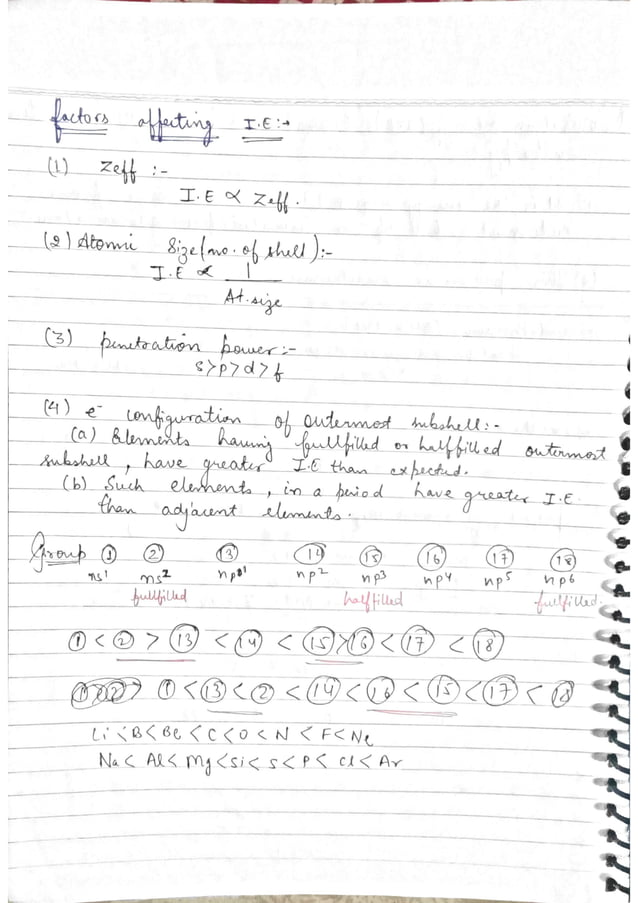 factors affecting I.E :→
(1) Zeff :-
I.E ∝ Zeff.
(2) Atomic Size (no. of shell) :-
I.E ∝ 1
At. size
(3) penetration power :-
s > p > d > f
(4) e⁻ configuration of outermost subshell :-
(a) Elements having fullfilled or halffilled outermost
subshell, have greater I.E than expected.
(b) Such elements, in a period have greater I.E
than adjacent elements.
Group ① ② ⑬ ⑭ ⑮ ⑯ ⑰ ⑱
ns¹ ns² np¹ np² np³ np⁴ np⁵ np⁶
fullfilled halffilled fullfilled.
① < ② > ⑬ < ⑭ < ⑮ > ⑯ < ⑰ < ⑱
① < ⑬ < ② < ⑭ < ⑯ < ⑮ < ⑰ < ⑱
Li < B < Be < C < O < N < F < Ne
Na < Al < Mg < Si < S < P < Cl < Ar